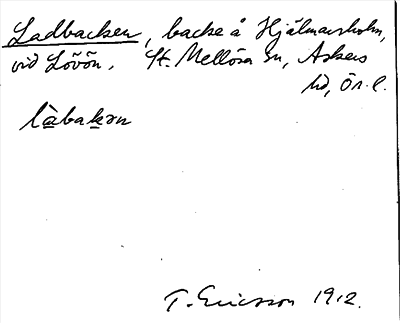 Ladbacken, backe å Hjälmarsholm,
vid Lövön. St. Mellösa sn, Askers
hd, Ör. l.
làbakən
T. Ericsson 1912.